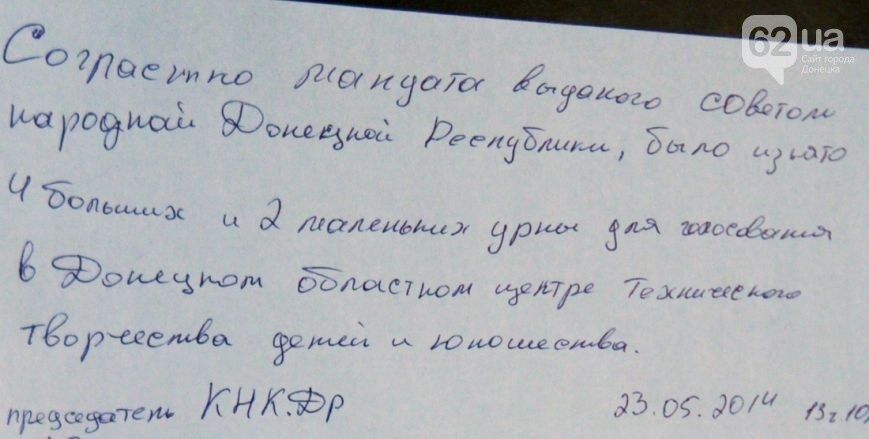 62.ua
Сайт города
Донецка
Согластно мандата выданого советом
народнай Донецкай Республики, было изьято
4 больших и 2 маленьких урны для голосования
в Донецком областном центре Технического
творчества детей и юношества.
председатель КНК.ДР 23.05.2014 13г.10